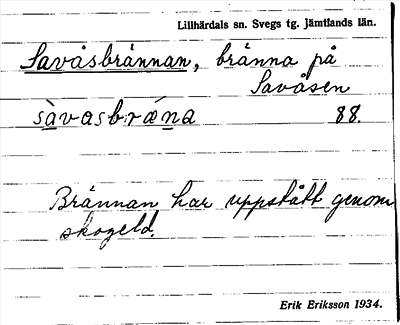 Lillhärdals sn. Svegs tg. Jämtlands län.
Savåsbrännan, bränna på
Savåsen
sàvasbrǽna 88.
Brännan har uppstått genom
skogeld.
Erik Eriksson 1934.